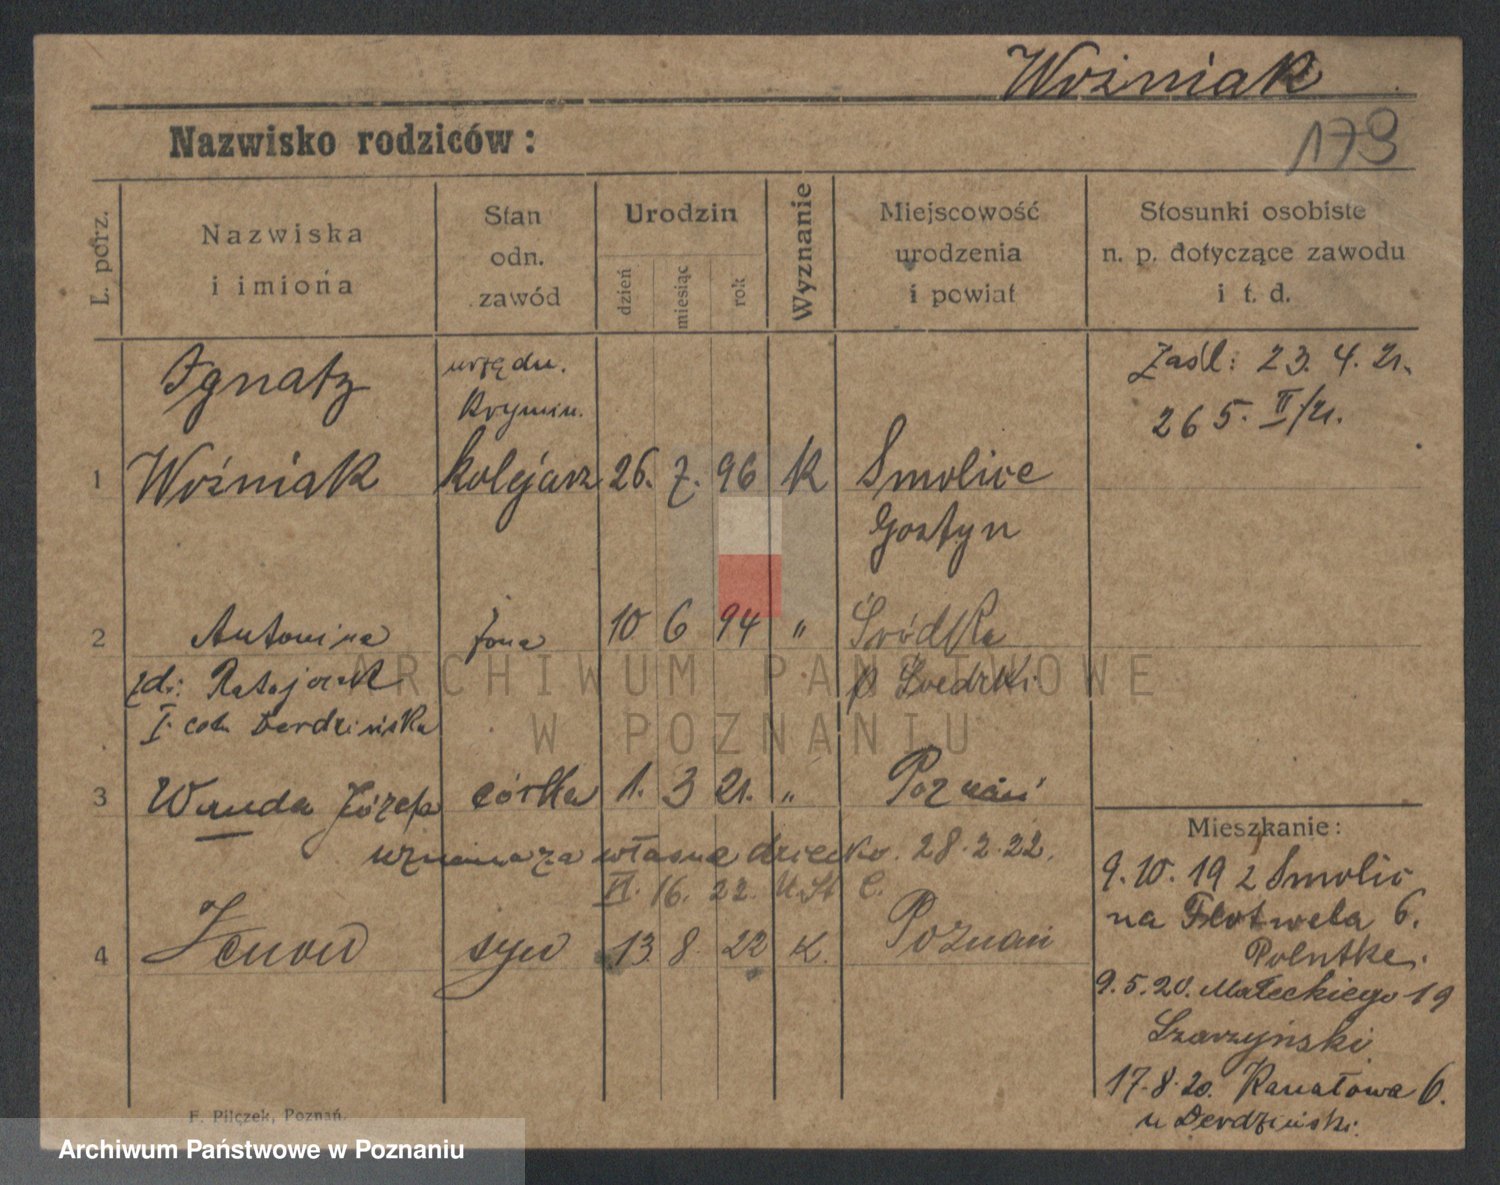 Woźniak
Nazwisko rodziców:
179
L. porz.
Nazwiska
i imiona
Stan
odn.
zawód
Urodzin
dzień
miesiąc
rok
Wyznanie
Miejscowość
urodzenia
i powiat
Stosunki osobiste
n. p. dotyczące zawodu
i t. d.
Ignatz
urzędn.
Krymin.
Zaśl: 23. 4. 21.
265. II/21.
1 Woźniak kolejarz 26. 7. 96 K Smolice
Gostyn
2 Antonina żona 10 6 94 " Śródka
zd: Ratajczak p Średzki
I. Derdzińska
3 Wanda Józefa córka 1. 3 21. " Poznań
uznana za własne dziecko. 28.2.22.
VI. 16. 22. U. St C.
4 Zenon syn 13. 8. 22 K. Poznań
Mieszkanie:
9.10.19 z Smolic
na Flotwela 6.
9.5.20. Małeckiego 19
Szarzyński
17.8.20. Kanałowa 6.
u Derdziński.
F. Pilczek, Poznań.
ARCHIWUM PAŃSTWOWE
W POZNANIU
Archiwum Państwowe w Poznaniu